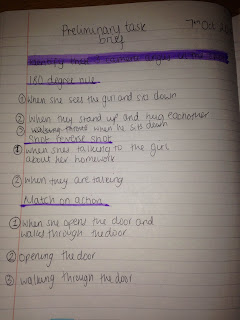 Preliminary task
brief
7th Oct
Identify their camera angles in the
180 degree rule
① When she sees the gun and sits down
② When they stand up and hug eachother
③ when he sits down
Shot reverse shot
① when shes talking to the gun
about her homework
② when they are talking
Match on action
① when she opens the door and
walks through the door.
② opening the door
③ walking through the door